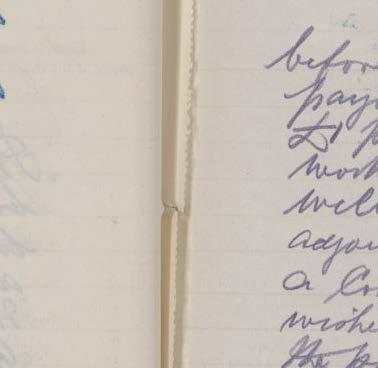 before
pay
£1 p
work
well
adjou
a Co
wishe
the p